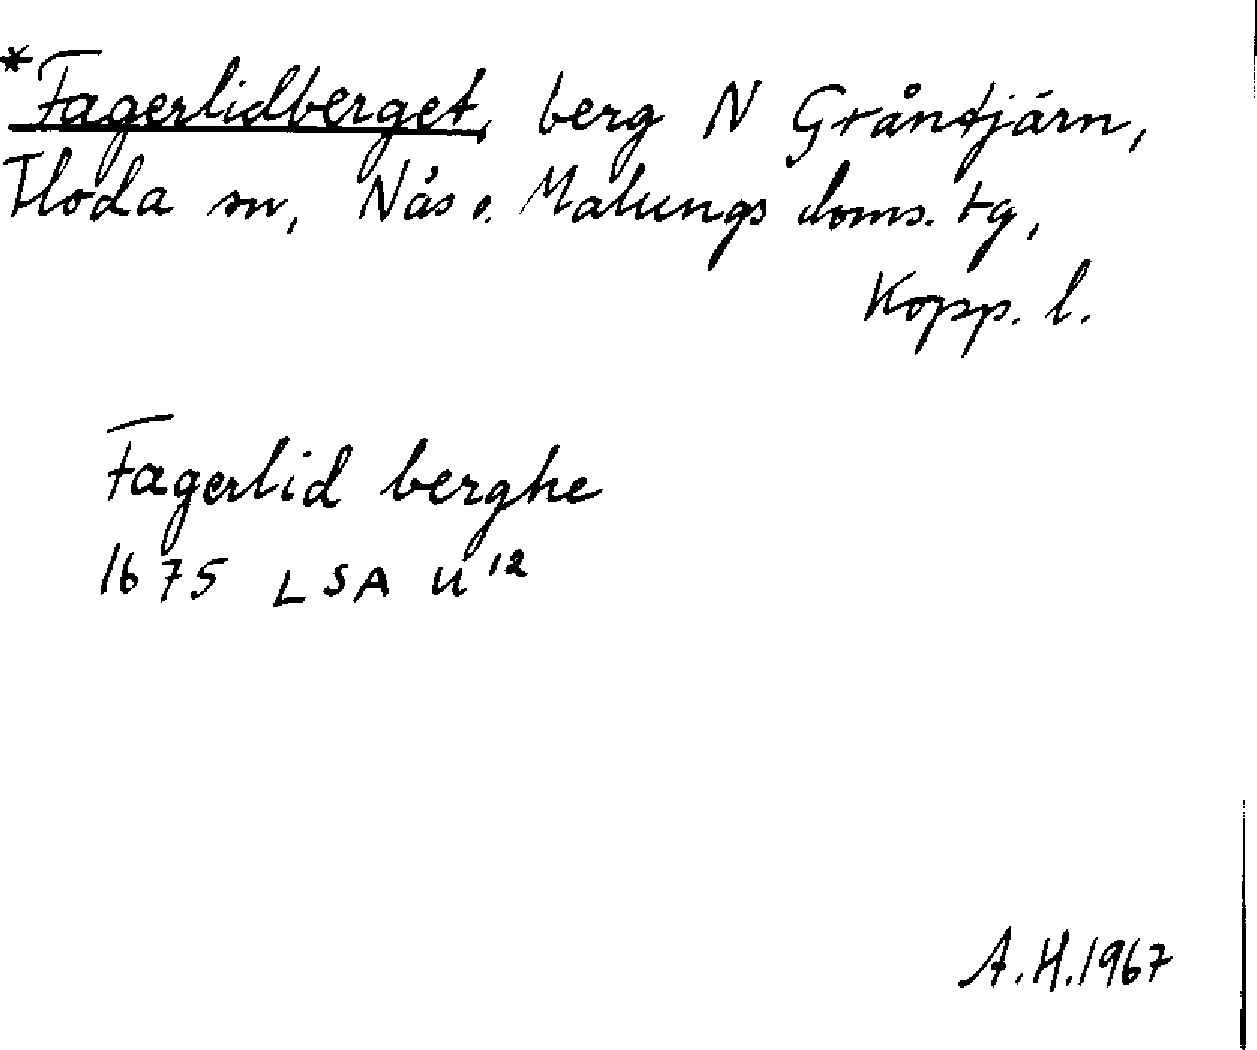 *Fagerlidberget, berg N Gråntjärn,
Floda sn, Nås o. Malungs doms. tg,
Kopp. l.
Fagerlid berghe
1675 LSA U 12
A.H. 1967